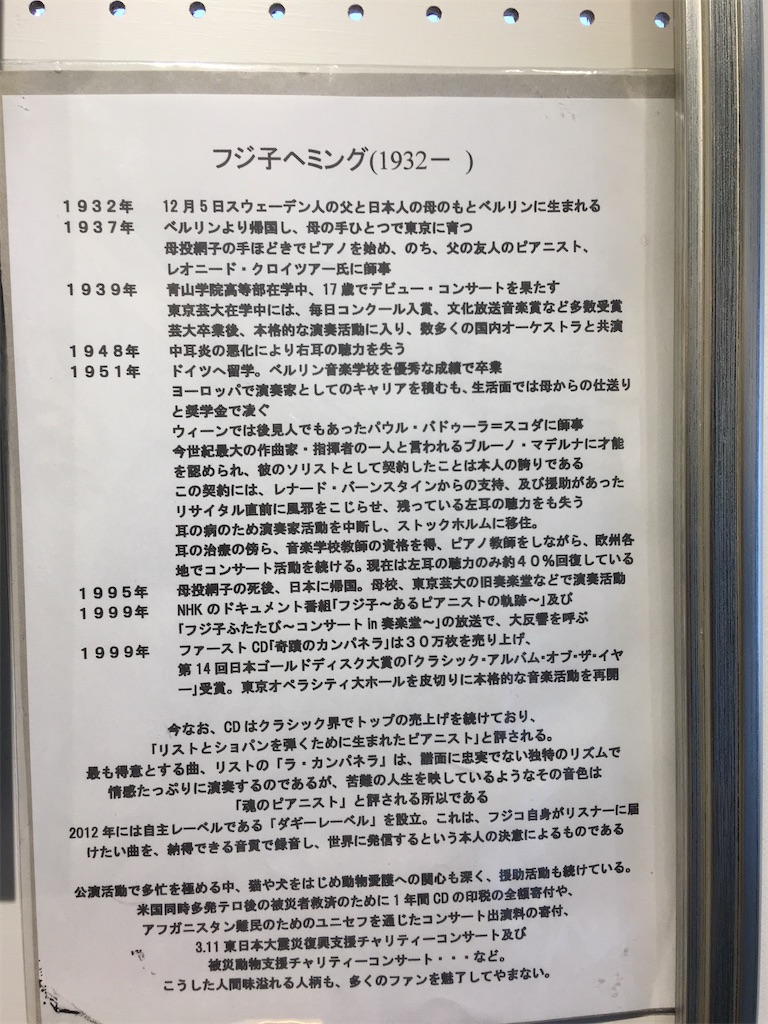 フジ子ヘミング(1932－ )
１９３２年 12月5日スウェーデン人の父と日本人の母のもとベルリンに生まれる
１９３７年 ベルリンより帰国し、母の手ひとつで東京に育つ
母投網子の手ほどきでピアノを始め、のち、父の友人のピアニスト、
レオニード・クロイツアー氏に師事
１９３９年 青山学院高等部在学中、17歳でデビュー・コンサートを果たす
東京芸大在学中には、毎日コンクール入賞、文化放送音楽賞など多数受賞
芸大卒業後、本格的な演奏活動に入り、数多くの国内オーケストラと共演
１９４８年 中耳炎の悪化により右耳の聴力を失う
１９５１年 ドイツへ留学。ベルリン音楽学校を優秀な成績で卒業
ヨーロッパで演奏家としてのキャリアを積むも、生活面では母からの仕送り
と奨学金で凌ぐ
ウィーンでは後見人でもあったパウル・バドゥーラ＝スコダに師事
今世紀最大の作曲家・指揮者の一人と言われるブルーノ・マデルナに才能
を認められ、彼のソリストとして契約したことは本人の誇りである
この契約には、レナード・バーンスタインからの支持、及び援助があった
リサイタル直前に風邪をこじらせ、残っている左耳の聴力をも失う
耳の病のため演奏家活動を中断し、ストックホルムに移住。
耳の治療の傍ら、音楽学校教師の資格を得、ピアノ教師をしながら、欧州各
地でコンサート活動を続ける。現在は左耳の聴力のみ約４０％回復している
１９９５年 母投網子の死後、日本に帰国。母校、東京芸大の旧奏楽堂などで演奏活動
１９９９年 NHKのドキュメント番組「フジ子～あるピアニストの軌跡～」及び
「フジ子ふたたび～コンサートin奏楽堂～」の放送で、大反響を呼ぶ
１９９９年 ファーストCD「奇蹟のカンパネラ」は３０万枚を売り上げ、
第14回日本ゴールドディスク大賞の「クラシック・アルバム・オブ・ザ・イヤ
ー」受賞。東京オペラシティ大ホールを皮切りに本格的な音楽活動を再開
今なお、CDはクラシック界でトップの売上げを続けており、
「リストとショパンを弾くために生まれたピアニスト」と評される。
最も得意とする曲、リストの「ラ・カンパネラ」は、譜面に忠実でない独特のリズムで
情感たっぷりに演奏するのであるが、苦難の人生を映しているようなその音色は
「魂のピアニスト」と評される所以である
2012年には自主レーベルである「ダギーレーベル」を設立。これは、フジコ自身がリスナーに届
けたい曲を、納得できる音質で録音し、世界に発信するという本人の決意によるものである
公演活動で多忙を極める中、猫や犬をはじめ動物愛護への関心も深く、援助活動も続けている。
米国同時多発テロ後の被災者救済のために1年間CDの印税の全額寄付や、
アフガニスタン難民のためのユニセフを通じたコンサート出演料の寄付、
3.11東日本大震災復興支援チャリティーコンサート及び
被災動物支援チャリティーコンサート・・・など。
こうした人間味溢れる人柄も、多くのファンを魅了してやまない。